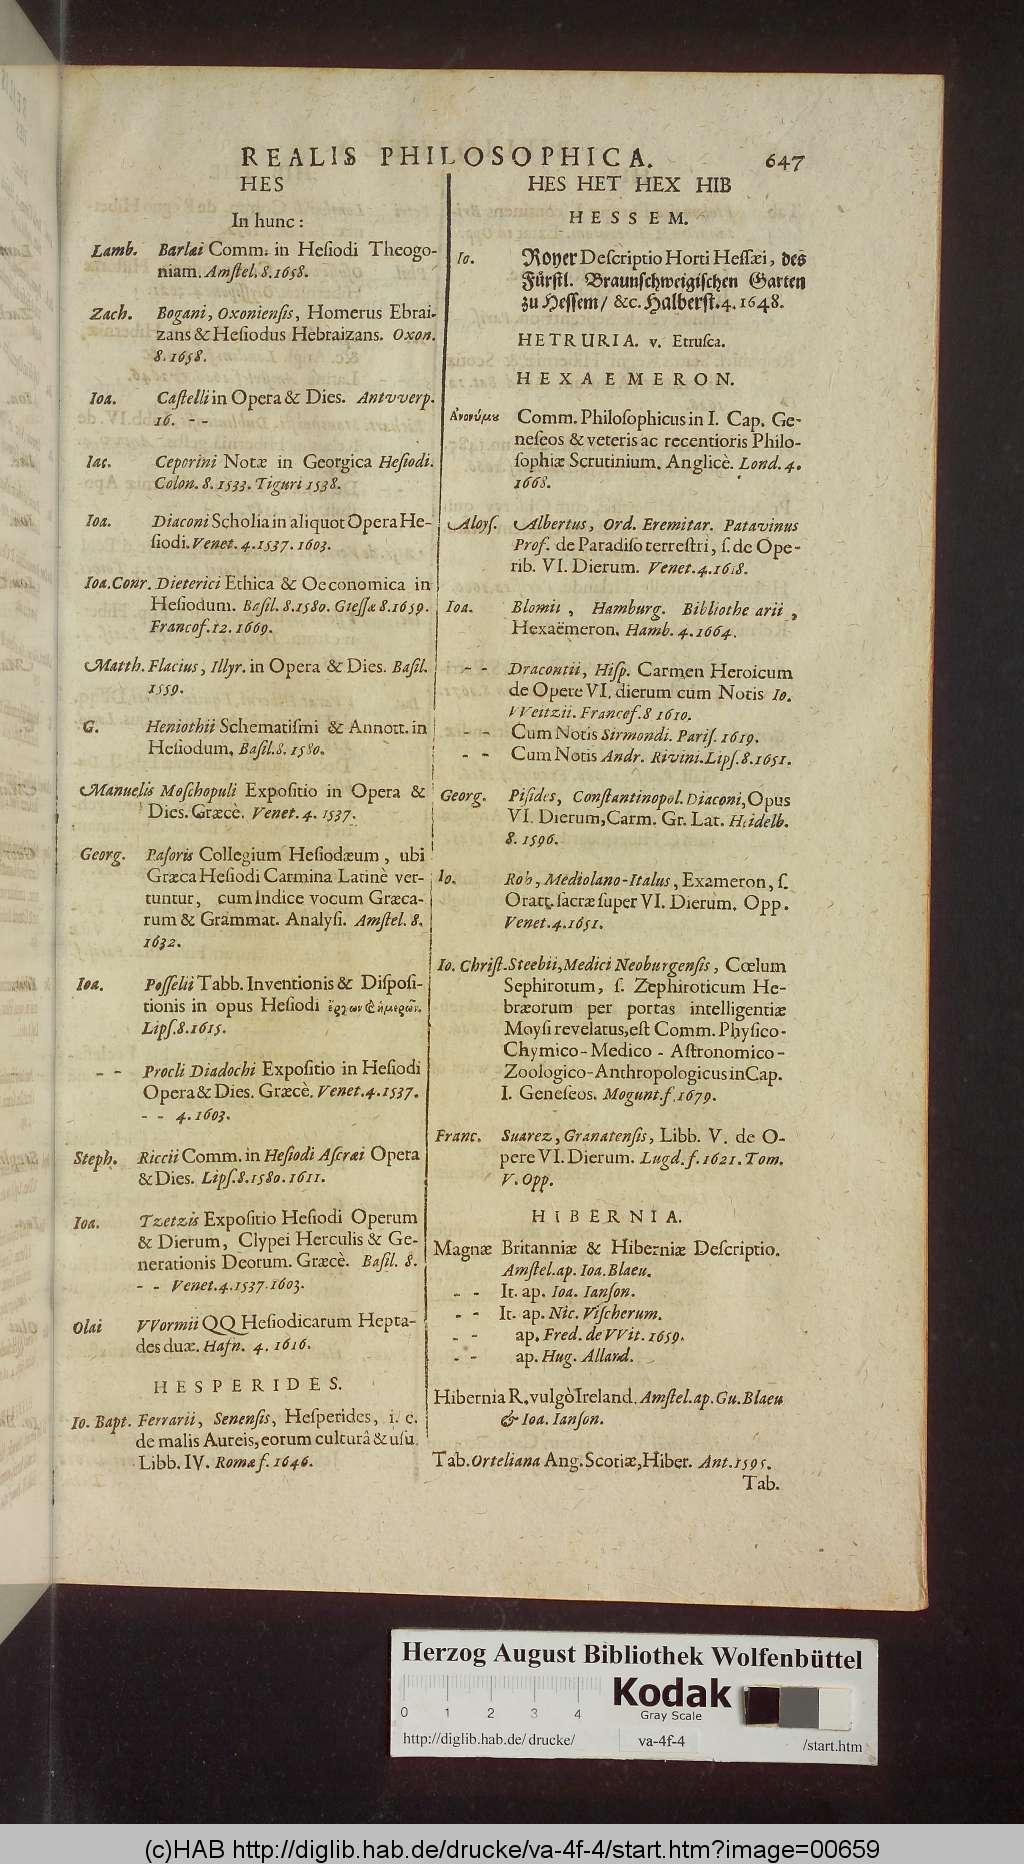 REALIS PHILOSOPHICA. 647
HES
In hunc:
Lamb. Barlæi Comm. in Hesiodi Theogo-
niam. Amstel. 8. 1658.
Zach. Bogani, Oxoniensis, Homerus Ebrai-
zans & Hesiodus Hebraizans. Oxon.
8. 1658.
Ioa. Castelli in Opera & Dies. Antvverp.
16. - -
Iac. Ceporini Notæ in Georgica Hesiodi.
Colon. 8. 1533. Tiguri 1538.
Ioa. Diaconi Scholia in aliquot Opera He-
siodi. Venet. 4. 1537. 1603.
Ioa. Conr. Dieterici Ethica & Oeconomica in
Hesiodum. Basil. 8. 1580. Giessæ 8. 1659.
Francof. 12. 1669.
Matth. Flacius, Illyr. in Opera & Dies. Basil.
1559.
G. Heniothii Schematismi & Annott. in
Hesiodum. Basil. 8. 1580.
Manuelis Moschopuli Expositio in Opera &
Dies. Græcè. Venet. 4. 1537.
Georg. Pasoris Collegium Hesiodæum, ubi
Græca Hesiodi Carmina Latinè ver-
tuntur, cum Indice vocum Græca-
rum & Grammat. Analysi. Amstel. 8.
1632.
Ioa. Posselii Tabb. Inventionis & Disposi-
tionis in opus Hesiodi ἔργων & ἡμερῶν.
Lips. 8. 1615.
- - Procli Diadochi Expositio in Hesiodi
Opera & Dies. Græcè. Venet. 4. 1537.
- - 4. 1603.
Steph. Riccii Comm. in Hesiodi Ascræi Opera
& Dies. Lips. 8. 1580. 1611.
Ioa. Tzetzis Expositio Hesiodi Operum
& Dierum, Clypei Herculis & Ge-
nerationis Deorum. Græcè. Basil. 8.
- - Venet. 4. 1537. 1603.
Olai VVormii QQ Hesiodicarum Hepta-
des duæ. Hafn. 4. 1616.
HESPERIDES.
Io. Bapt. Ferrarii, Senensis, Hesperides, i. e.
de malis Aureis, eorum culturâ & usu.
Libb. IV. Romæ f. 1646.
HES HET HEX HIB
HESSEM.
Io. Royer Descriptio Horti Hessæi, des
Fürstl. Braunschweigischen Garten
zu Hessem / &c. Halberst. 4. 1648.
HETRURIA. v. Etrusca.
HEXAEMERON.
Ἀνονύμου Comm. Philosophicus in I. Cap. Ge-
neseos & veteris ac recentioris Philo-
sophiæ Scrutinium. Anglicè. Lond. 4.
1668.
Aloys. Albertus, Ord. Eremitar. Patavinus
Prof. de Paradiso terrestri, s. de Ope-
rib. VI. Dierum. Venet. 4. 1618.
Ioa. Blomii, Hamburg. Bibliothe arii,
Hexaëmeron. Hamb. 4. 1664.
- - Dracontii, Hisp. Carmen Heroicum
de Opere VI. dierum cum Notis Io.
VVeitzii. Francef. 8 1610.
- - Cum Notis Sirmondi. Paris. 1619.
- - Cum Notis Andr. Rivini. Lips. 8. 1651.
Georg. Pisides, Constantinopol. Diaconi, Opus
VI. Dierum, Carm. Gr. Lat. Heidelb.
8. 1596.
Io. Rob, Mediolano-Italus, Exameron, s.
Oratt. sacræ super VI. Dierum. Opp.
Venet. 4. 1651.
Io. Christ. Steebii, Medici Neoburgensis, Cœlum
Sephirotum, s. Zephiroticum He-
bræorum per portas intelligentiæ
Moysi revelatus, est Comm. Physico-
Chymico-Medico-Astronomico-
Zoologico-Anthropologicus in Cap.
I. Geneseos. Mogunt. f. 1679.
Franc. Suarez, Granatensis, Libb. V. de O-
pere VI. Dierum. Lugd. f. 1621. Tom.
V. Opp.
HIBERNIA.
Magnæ Britanniæ & Hiberniæ Descriptio.
Amstel. ap. Ioa. Blaeu.
- - It. ap. Ioa. Ianson.
- - It. ap. Nic. Vischerum.
- - ap. Fred. de VVit. 1659.
- - ap. Hug. Allard.
Hibernia R. vulgò Ireland. Amstel. ap. Gu. Blaeu
& Ioa. Ianson.
Tab. Orteliana Ang. Scotiæ, Hiber. Ant. 1595.
Tab.
Herzog August Bibliothek Wolfenbüttel
0 1 2 3 4
Kodak
Gray Scale
http://diglib.hab.de/drucke/ va-4f-4 /start.htm
(c)HAB http://diglib.hab.de/drucke/va-4f-4/start.htm?image=00659